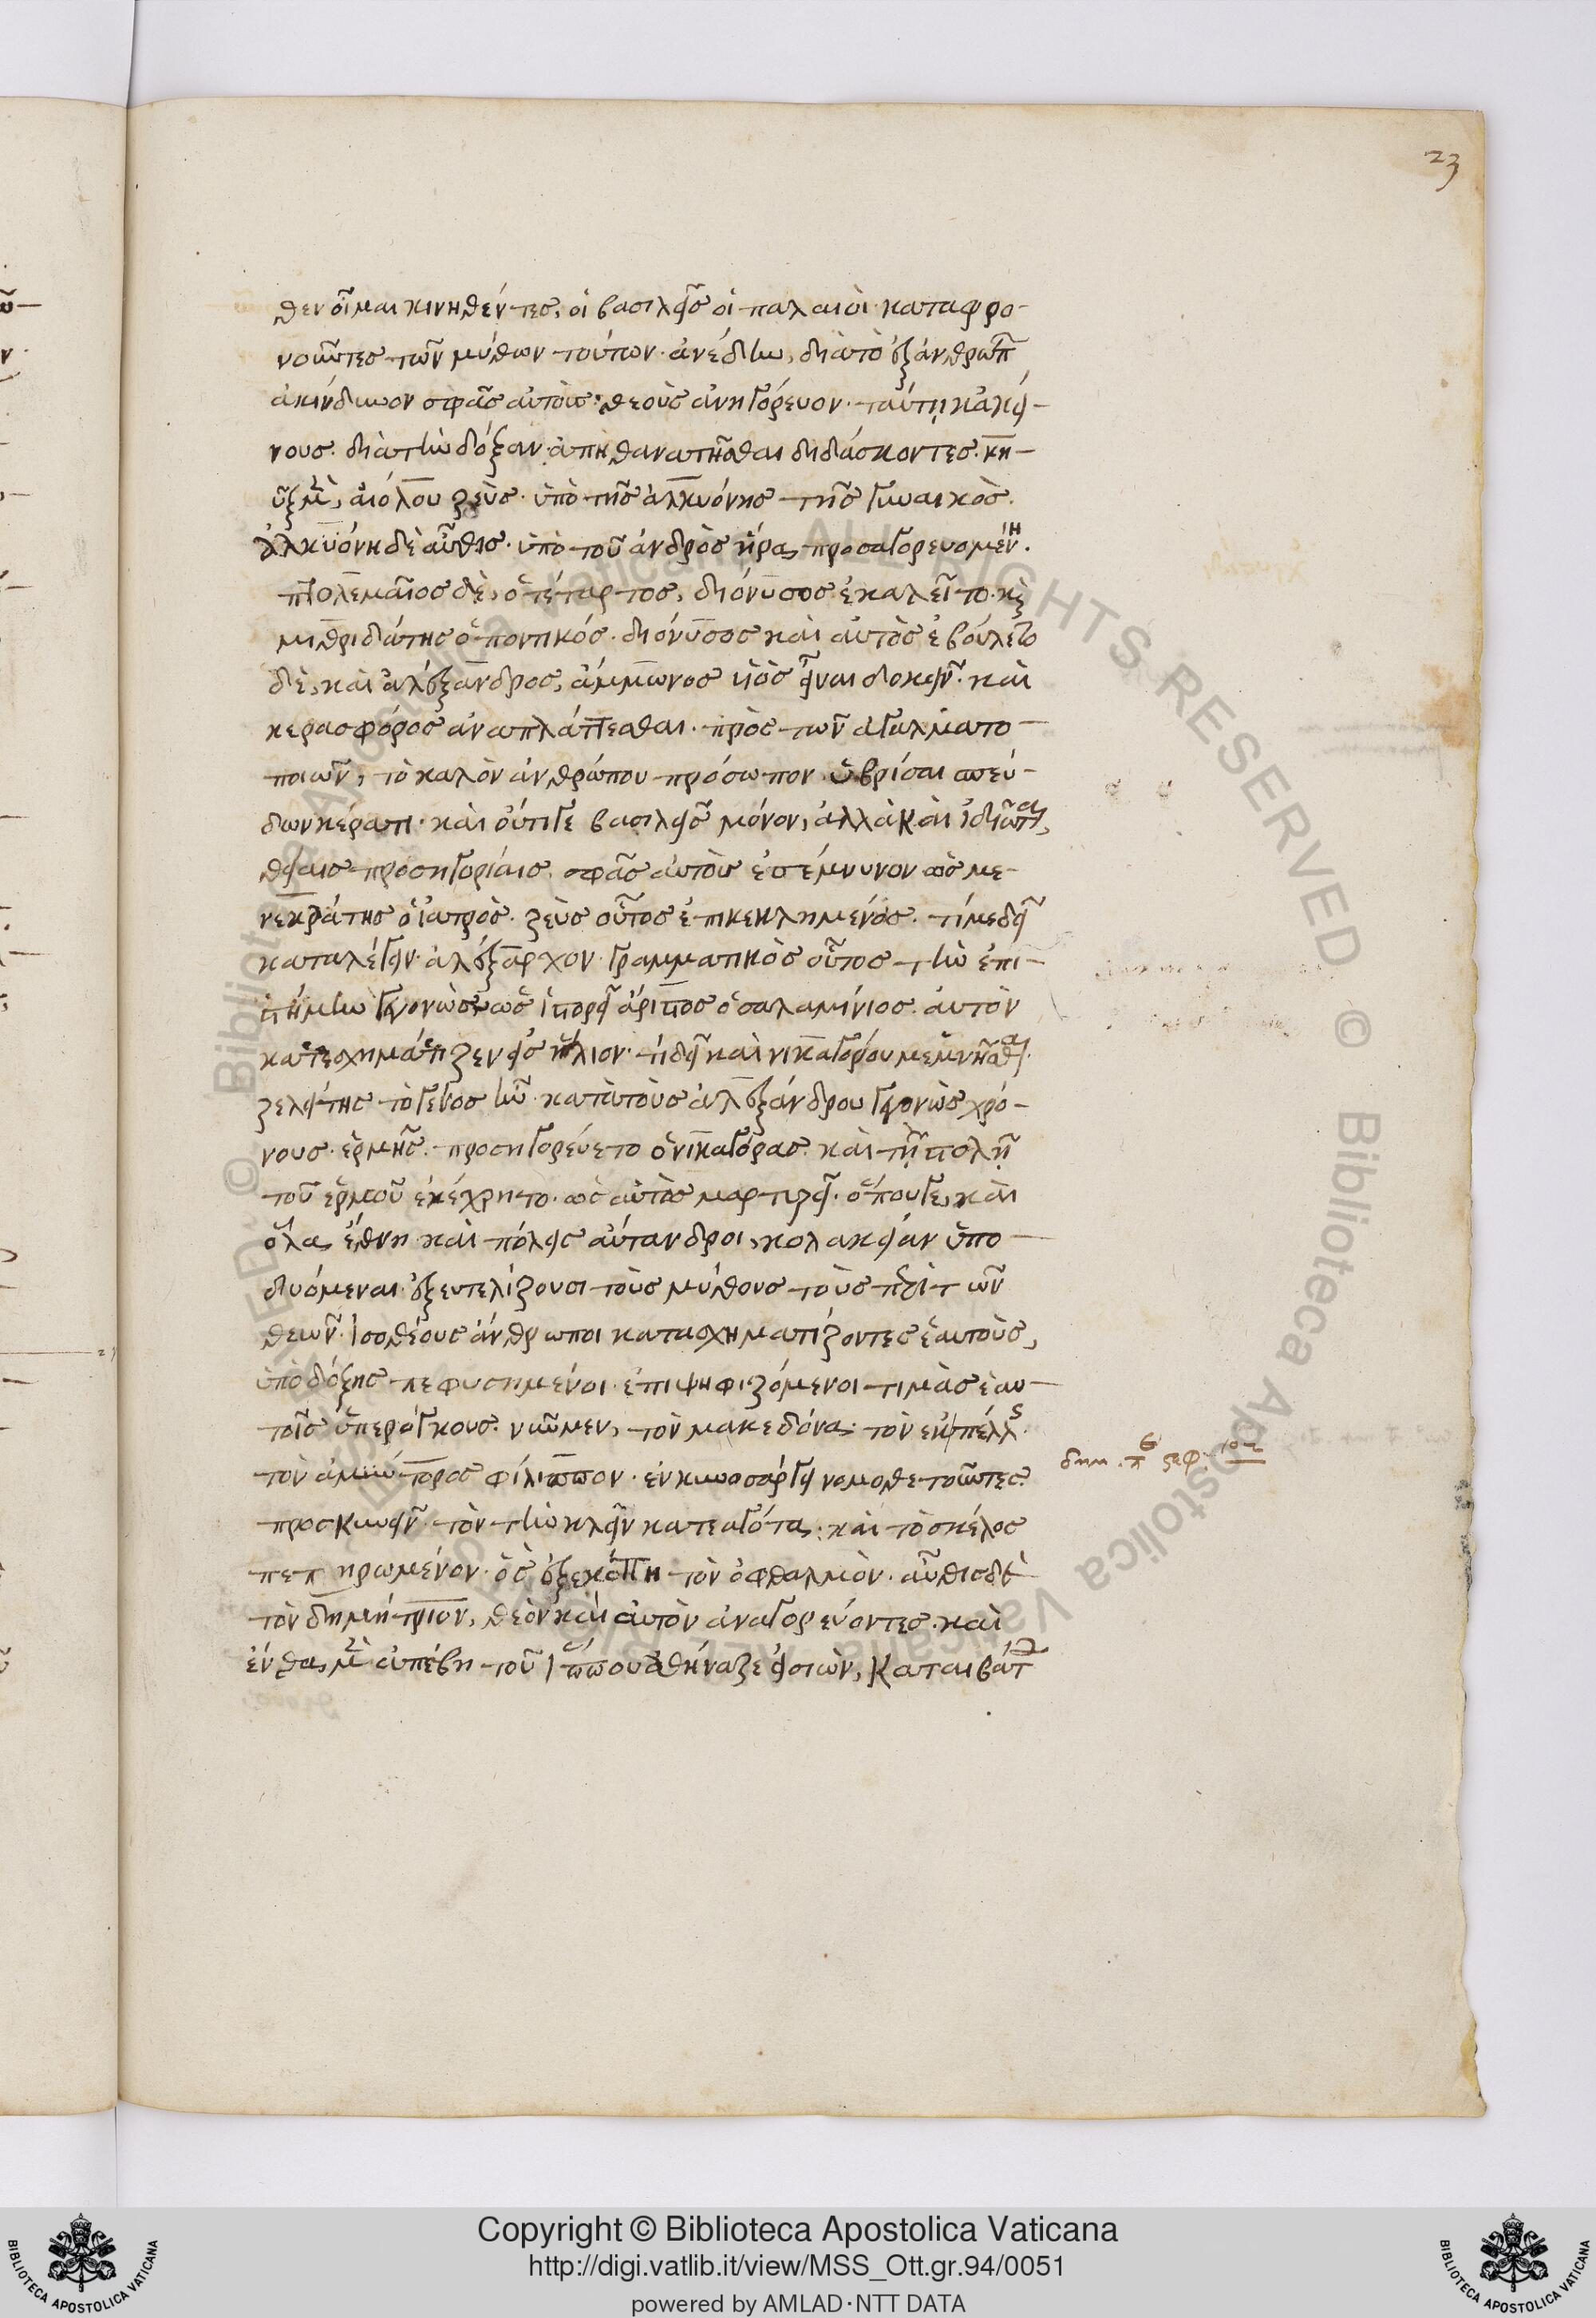 23
θεν οἶμαι κινηθέντες, οἱ βασιλεῖς οἱ παλαιοὶ καταφρο-
νοῦντες τῶν μύθων τούτων· ἀνέδην, διὰ τὸ ἐξ ἀνθρώπ
ἀκίνδυνον σφᾶς αὐτοὺς θεοὺς ἀνηγόρευον· ταύτῃ κἀκεί-
νους. διὰ τὴν δόξαν ἀπηθανατῆσθαι διδάσκοντες· κη-
ῦξ μὲν, αἰόλου ζεὺς· ὑπὸ τῆς ἀλκυόνης τῆς γυναικὸς.
ἀλκυόνη δὲ αὖθις· ὑπὸ τοῦ ἀνδρὸς ἥρα προσαγορευομένη.
πτολεμαῖος δὲ, ὁ τέταρτος, διόνυσος ἐκαλεῖτο· καὶ
μιθριδάτης ὁ ποντικός· διόνυσος καὶ αὐτὸς ἐβούλετο
δὲ, καὶ ἀλέξανδρος, ἄμμωνος υἱὸς εἶναι δοκεῖν· καὶ
κερασφόρος ἀναπλάττεσθαι· πρὸς τῶν ἀγαλματο-
ποιῶν, τὸ καλὸν ἀνθρώπου πρόσωπον ὑβρίσαι σπεύ-
δων κέρατι· καὶ οὔτι γε βασιλεῖς μόνον, ἀλλὰ καὶ ἰδιῶται,
θείαις προσηγορίαις, σφᾶς αὐτοὺς ἐσέμνυνον ὡς με-
νεκράτης ὁ ἰατρὸς· ζεὺς οὗτος ἐπικεκλημένος. τί με δεῖ
καταλέγειν ἀλέξαρχον· γραμματικὸς οὗτος τὴν ἐπι-
στήμην γεγονὼς ὡς ἱστορεῖ ἄριστος ὁ σαλαμίνιος. αὑτὸν
κατεσχημάτιζεν εἰς ἥλιον· τί δεῖ καὶ νικαγόρου μεμνῆσθαι.
ζελείτης τὸ γένος ἦν· κατὰ τοὺς ἀλεξάνδρου γεγονὼς χρό-
νους· ἑρμῆς. προσηγορεύετο ὁ νικαγόρας· καὶ τῇ στολῇ
τοῦ ἑρμοῦ ἐκέχρητο· ὡς αὐτὸς μαρτυρεῖ. ὅπου γε καὶ
ὅλα ἔθνη καὶ πόλεις αὔτανδροι, κολακείαν ὑπο-
δυόμεναι ἐξευτελίζουσι τοὺς μύθους τοὺς περὶ τῶν
θεῶν· ἰσοθέους ἄνθρωποι κατασχηματίζοντες ἑαυτοὺς,
ὑπὸ δόξης πεφυσημένοι· ἐπιψηφιζόμενοι τιμὰς ἑαυ-
τοῖς ὑπερόγκους. νῦν μὲν, τὸν μακεδόνα· τὸν ἐκ πέλλς
τὸν ἀμύντορος φίλιππον· ἐν κυνοσάργει νομοθετοῦντες
προσκυνεῖν· τὸν τὴν κλεῖν κατεαγότα· καὶ τὸ σκέλος
πεπηρωμένον· ὃς ἐξεκόπη τὸν ὀφθαλμὸν. αὖθις δὲ
τὸν δημήτριον, θεὸν καὶ αὐτὸν ἀναγορεύοντες· καὶ
ἔνθα μὲν ἀπέβη τοῦ ἵππου ἀθήναζε εἰσιὼν, καταιβάτ